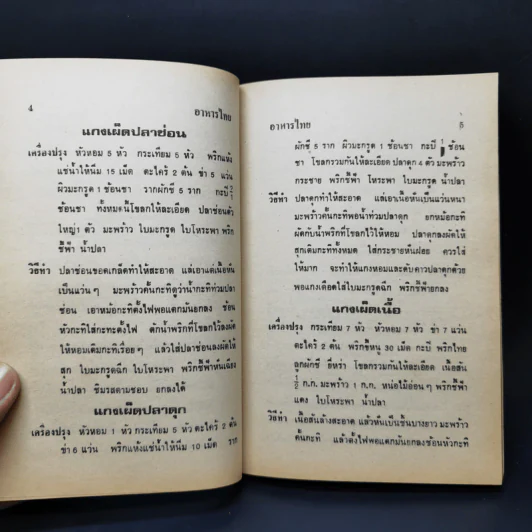 4 อาหารไทย
แกงเผ็ดปลาช่อน
เครื่องปรุง หัวหอม 5 หัว กระเทียม 5 หัว พริกแห้ง
แช่น้ำให้นิ่ม 15 เม็ด ตะไคร้ 2 ต้น ข่า 5 แว่น
ผิวมะกรูด 1 ช้อนชา รากผักชี 5 ราก กะปิ ½
ช้อนชา ทั้งหมดนี้โขลกให้ละเอียด ปลาช่อนตัว
ใหญ่ 1 ตัว มะพร้าว ใบมะกรูด ใบโหระพา พริก
ชี้ฟ้า น้ำปลา
วิธีทำ ปลาช่อนขอดเกล็ดทำให้สะอาด แล่เอาแต่เนื้อหั่น
เป็นแว่นๆ มะพร้าวคั้นกะทิดูว่าน้ำกะทิท่วมปลา
ช่อน เอาหม้อกะทิตั้งไฟพอแตกมันยกลง ช้อน
หัวกะทิใส่กะทะตั้งไฟ ตักน้ำพริกที่โขลกไว้ลงผัด
ให้หอมเติมกะทิเรื่อยๆ แล้วใส่ปลาช่อนลงผัดให้
สุก ใบมะกรูดฉีก ใบโหระพา พริกชี้ฟ้าหั่นเฉียง
น้ำปลา ชิมรสตามชอบ ยกลงได้
แกงเผ็ดปลาดุก
เครื่องปรุง หัวหอม 1 หัว กระเทียม 5 หัว ตะไคร้ 2 ต้น
ข่า 5 แว่น พริกแห้งแช่น้ำให้นิ่ม 10 เม็ด ราก
อาหารไทย 5
ผักชี 5 ราก ผิวมะกรูด 1 ช้อนชา กะปิ ช้อน
ชา โขลกรวมกันให้ละเอียด ปลาดุก 4 ตัว มะพร้าว
กระชาย พริกชี้ฟ้า โหระพา ใบมะกรูด น้ำปลา
วิธีทำ ปลาดุกทำให้สะอาด แล่เอาเนื้อหั่นเป็นแว่นหนา
มะพร้าวคั้นกะทิพอน้ำท่วมปลาดุก ยกหม้อกะทิ
ผัดกับน้ำพริกที่โขลกไว้ให้หอม ปลาดุกลงผัดให้
สุกเติมกะทิทั้งหมด ใส่กระชายหั่นฝอย ควรใส่
ให้มาก จะทำให้แกงหอมและดับคาวปลาดุกด้วย
พอแกงเดือดใส่ใบมะกรูดฉีก พริกชี้ฟ้ายกลง
แกงเผ็ดเนื้อ
เครื่องปรุง กระเทียม 7 หัว หัวหอม 7 หัว ข่า 7 แว่น
ตะไคร้ 2 ต้น พริกขี้หนู 30 เม็ด กะปิ พริกไทย
ลูกผักชี ยี่หร่า โขลกรวมกันให้ละเอียด เนื้อสัน
½ ก.ก. มะพร้าว 1 ก.ก. หน่อไม้อ่อนๆ พริกชี้ฟ้า
แดง ใบโหระพา น้ำปลา
วิธีทำ เนื้อสันล้างสะอาด แล้วหั่นเป็นชิ้นบางยาว มะพร้าว
คั้นกะทิ แล้วตั้งไฟพอแตกมันยกลงช้อนหัวกะทิ